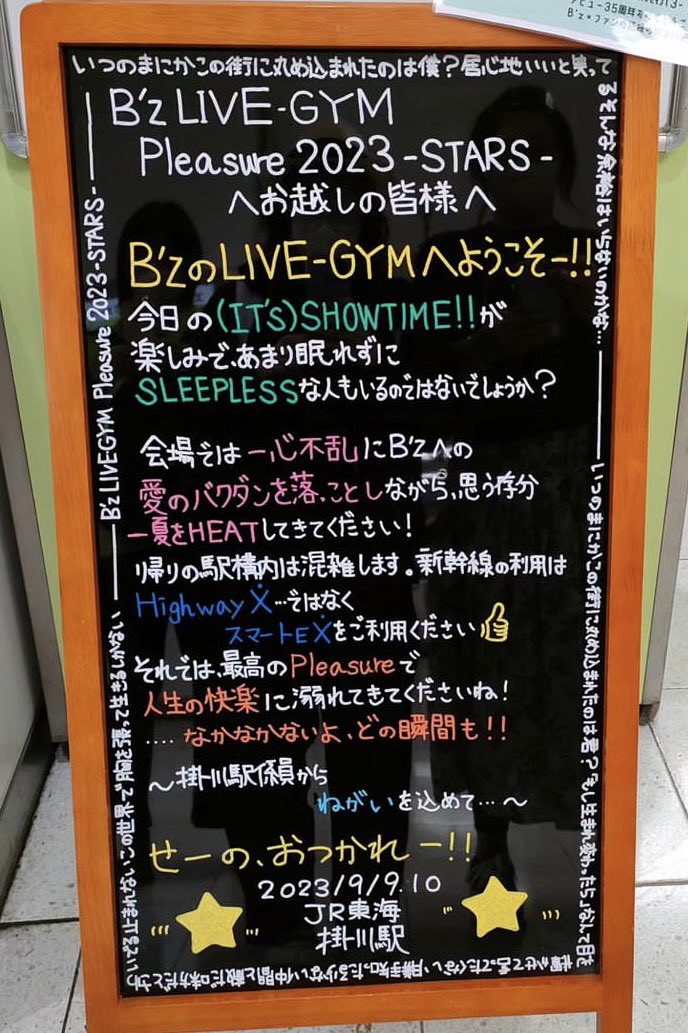 デビュー35周年
いつのまにかこの街に丸め込まれたのは僕?居心地いいと笑って
るそんな余裕はいらないのかな…
B'z LIVEGYM Pleasure 2023 -STARS-
B'z LIVE-GYM
Pleasure 2023 -STARS-
へお越しの皆様へ
B'zのLIVE-GYMへようこそー!!
今日の(IT'S)SHOWTIME!!が
楽しみで、あまり眠れずに
SLEEPLESSな人もいるのではないでしょうか?
会場では一心不乱にB'zへの
愛のバクダンを落っことしながら、思う存分
一夏をHEATしてきてください!
帰りの駅構内は混雑します。新幹線の利用は
Highway X…ではなく
スマートEXをご利用ください
それでは、最高のPleasureで
人生の快楽に溺れてきてくださいね!
....なかなかないよ、どの瞬間も!!
〜掛川駅係員から
ねがいを込めて…〜
せーの、おつかれー!!
2023/9/9.10
JR東海
掛川駅
いつのまにかこの街に丸め込まれたのは君?もし生まれ変わったらなんて目を
輝かせて言ってたくない
勝手知ったる少ない仲間と敵だ味方だとか
ついでる止まれないこの世界で胸を張って生きるしかない